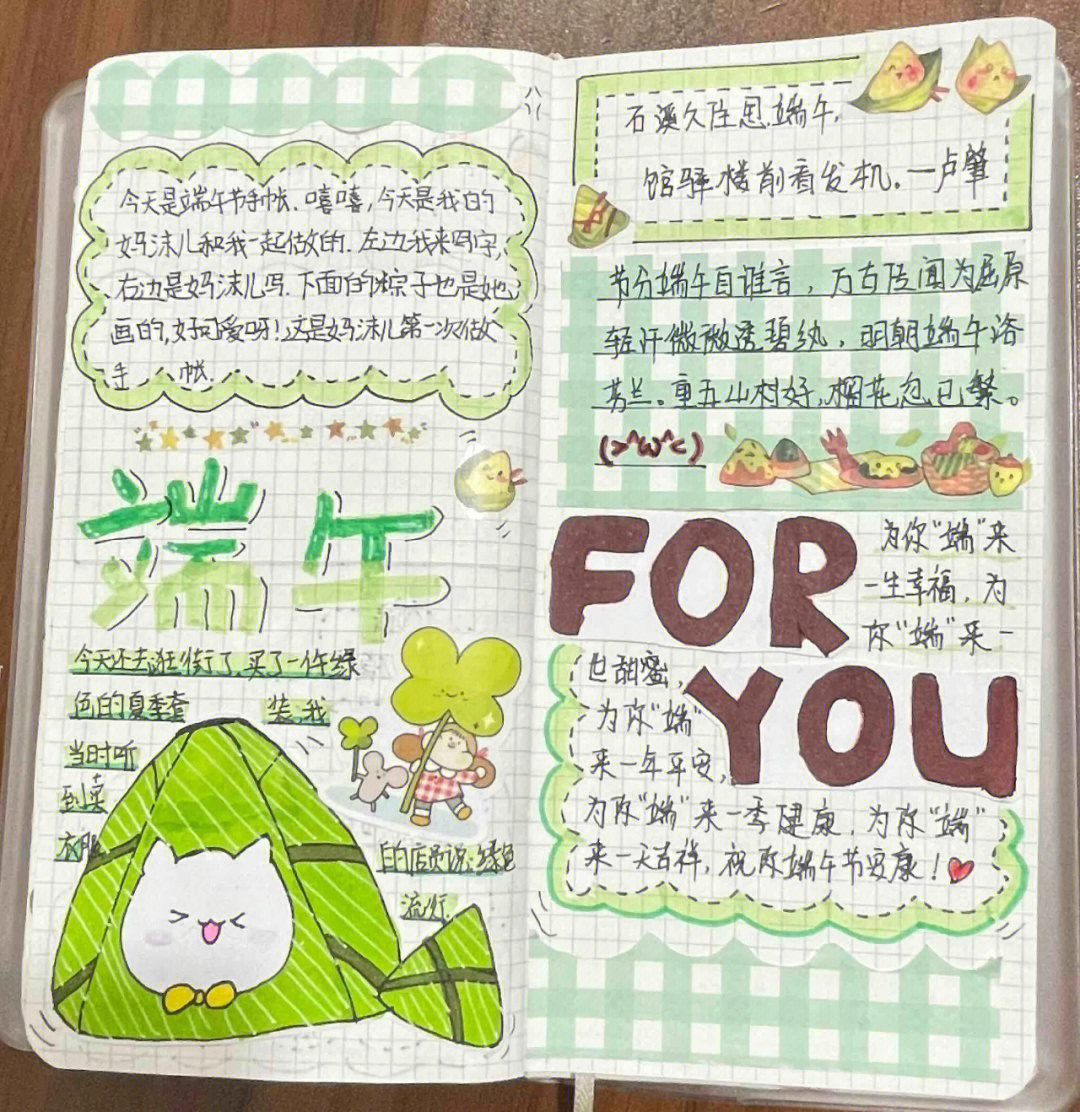 今天是端午节手帐.嘻嘻,今天是我的
妈沫儿和我一起做的.左边我来写字,
右边是妈沫儿写.下面的粽子也是她
画的,好可爱呀!这是妈沫儿第一次做
手帐.
端午
今天还去逛街了,买了一件绿
色的夏季套装,我
当时听
到卖
衣服
的店员说:绿色
流行.
石溪久住思端午,
馆驿楼前看发机.一卢肇
节分端午自谁言,万古传闻为屈原
轻汗微微透碧纨,明朝端午浴
芳兰。重五山村好,榴花忽已繁。
(>^ω^<)
FOR
YOU
为你"端"来
一生幸福,为
你"端"来一
世甜蜜,
为你"端"
来一年平安,
为你"端"来一季健康,为你"端"
来一天吉祥,祝你端午节安康!